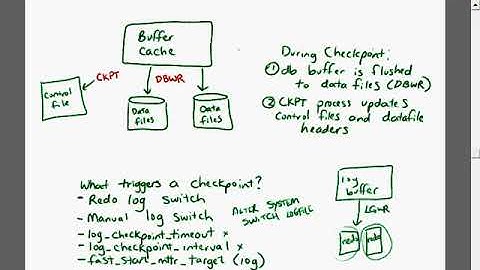 Buffer
Cache
CKPT
DBWR
Control
file
Data
files
Data
files
During Checkpoint:
① db buffer is flushed
to data files (DBWR)
② CKPT process updates
control files and datafile
headers
What triggers a checkpoint?
- Redo log switch
- Manual log switch
ALTER SYSTEM
SWITCH LOGFILE
- log_checkpoint_timeout x
- log_checkpoint_interval x
- fast_start_mttr_target (log)
log
buffer
LGWR
redo
redo